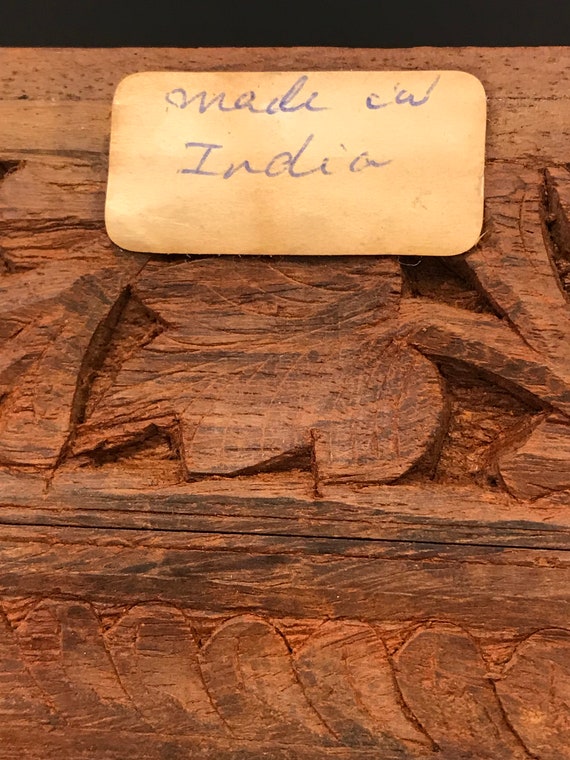 made in
India